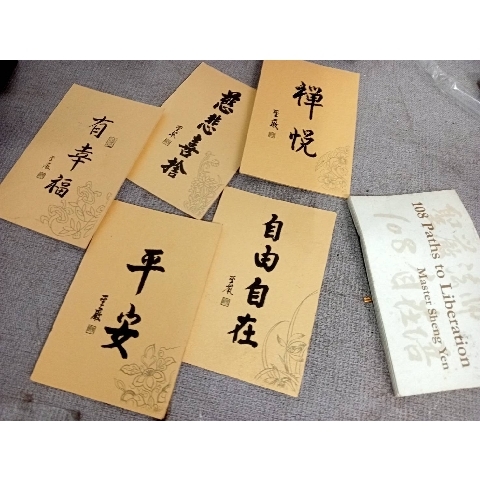 有幸福
聖嚴
慈悲喜捨
聖嚴
禪悅
聖嚴
平安
聖嚴
自由自在
聖嚴
108 Paths to Liberation
Master Sheng Yen
108